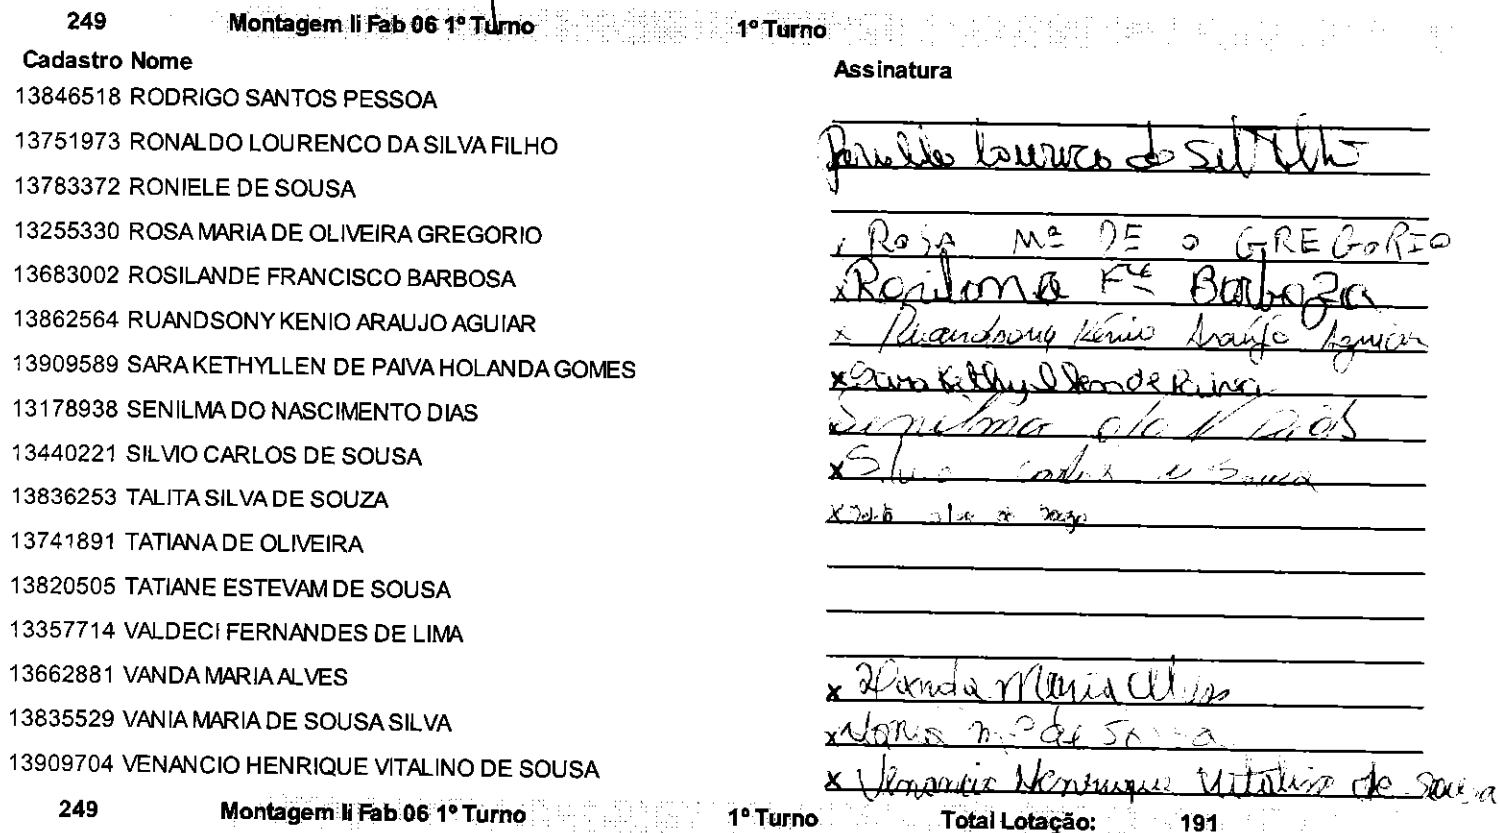 249 Montagem Ii Fab 06 1º Turno 1º Turno
Cadastro Nome Assinatura
13846518 RODRIGO SANTOS PESSOA
13751973 RONALDO LOURENCO DA SILVA FILHO
13783372 RONIELE DE SOUSA
13255330 ROSA MARIA DE OLIVEIRA GREGORIO x ROSA Mª DE O GREGORIO
13683002 ROSILANDE FRANCISCO BARBOSA x Barboza
13862564 RUANDSONY KENIO ARAUJO AGUIAR x Ruandsony Kênio Araújo Aguiar
13909589 SARA KETHYLLEN DE PAIVA HOLANDA GOMES x Sara Kethyllen de Paiva
13178938 SENILMA DO NASCIMENTO DIAS Senilma do N Dias
13440221 SILVIO CARLOS DE SOUSA x
13836253 TALITA SILVA DE SOUZA x
13741891 TATIANA DE OLIVEIRA
13820505 TATIANE ESTEVAM DE SOUSA
13357714 VALDECI FERNANDES DE LIMA
13662881 VANDA MARIA ALVES x Vanda Maria Alves
13835529 VANIA MARIA DE SOUSA SILVA x Vania mª de
13909704 VENANCIO HENRIQUE VITALINO DE SOUSA x Venancio Henrique Vitalino de Sousa
249 Montagem Ii Fab 06 1º Turno 1º Turno Total Lotação: 191